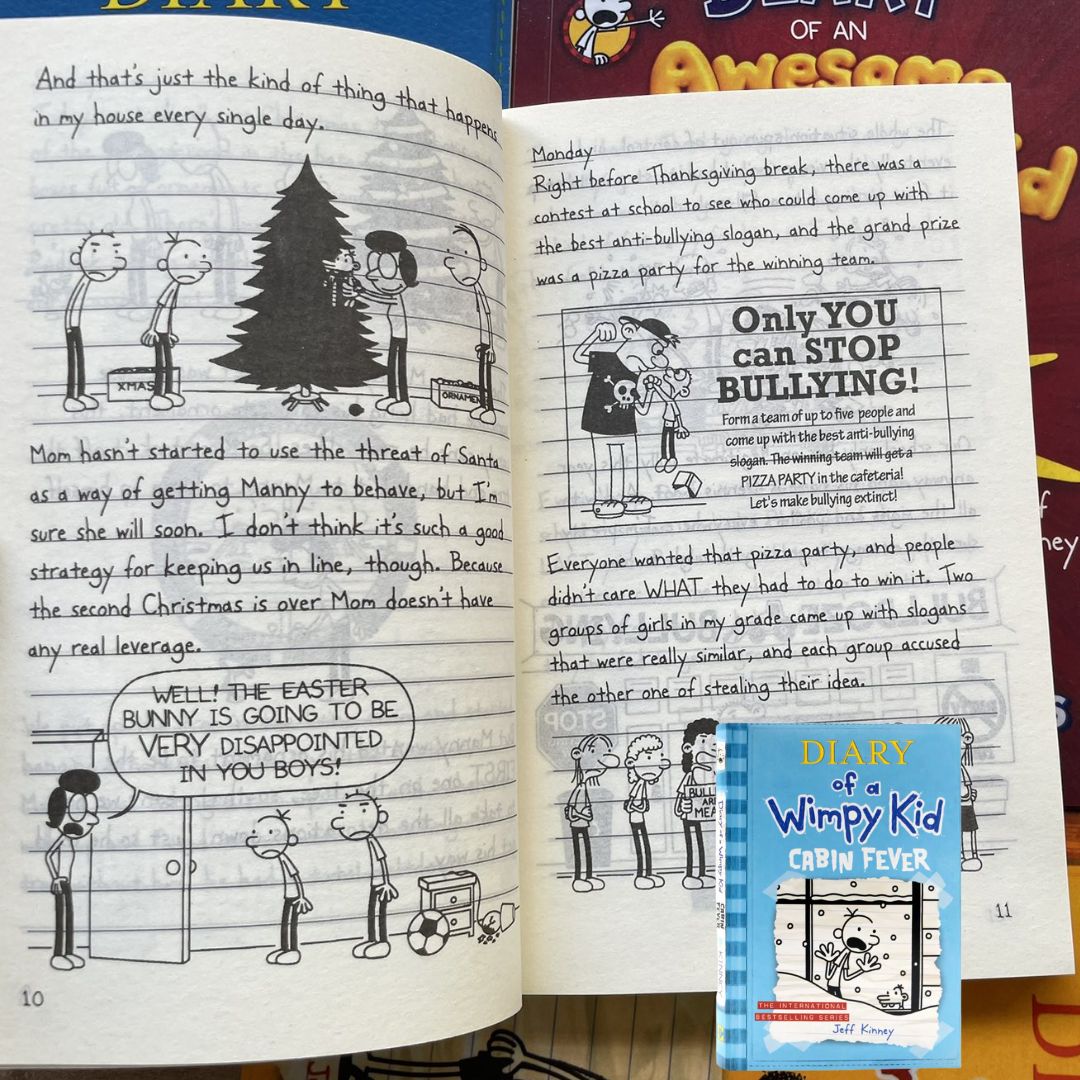 DIARY
DIARY
OF AN
Awesome
And that's just the kind of thing that happens
in my house every single day.
XMAS
ORNAMEN
Mom hasn't started to use the threat of Santa
as a way of getting Manny to behave, but I'm
sure she will soon. I don't think it's such a good
strategy for keeping us in line, though. Because
the second Christmas is over Mom doesn't have
any real leverage.
WELL! THE EASTER
BUNNY IS GOING TO BE
VERY DISAPPOINTED
IN YOU BOYS!
10
Monday
Right before Thanksgiving break, there was a
contest at school to see who could come up with
the best anti-bullying slogan, and the grand prize
was a pizza party for the winning team.
Only YOU
can STOP
BULLYING!
Form a team of up to five people and
come up with the best anti-bullying
slogan. The winning team will get a
PIZZA PARTY in the cafeteria!
Let's make bullying extinct!
Everyone wanted that pizza party, and people
didn't care WHAT they had to do to win it. Two
groups of girls in my grade came up with slogans
that were really similar, and each group accused
the other one of stealing their idea.
BULL
AR
MEA
11
DIARY
of a
Wimpy Kid
CABIN FEVER
THE INTERNATIONAL
BESTSELLING SERIES
Jeff Kinney